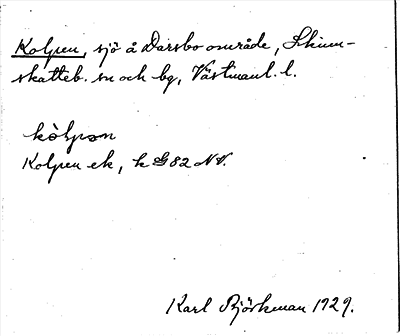 Kolpen, sjö å Darsbo område, Skinn-
skatteb. sn och bg, Västmanl. l.
kòlpən
Kolpen ek, k G 82 NV.
Karl Björkman 1929.